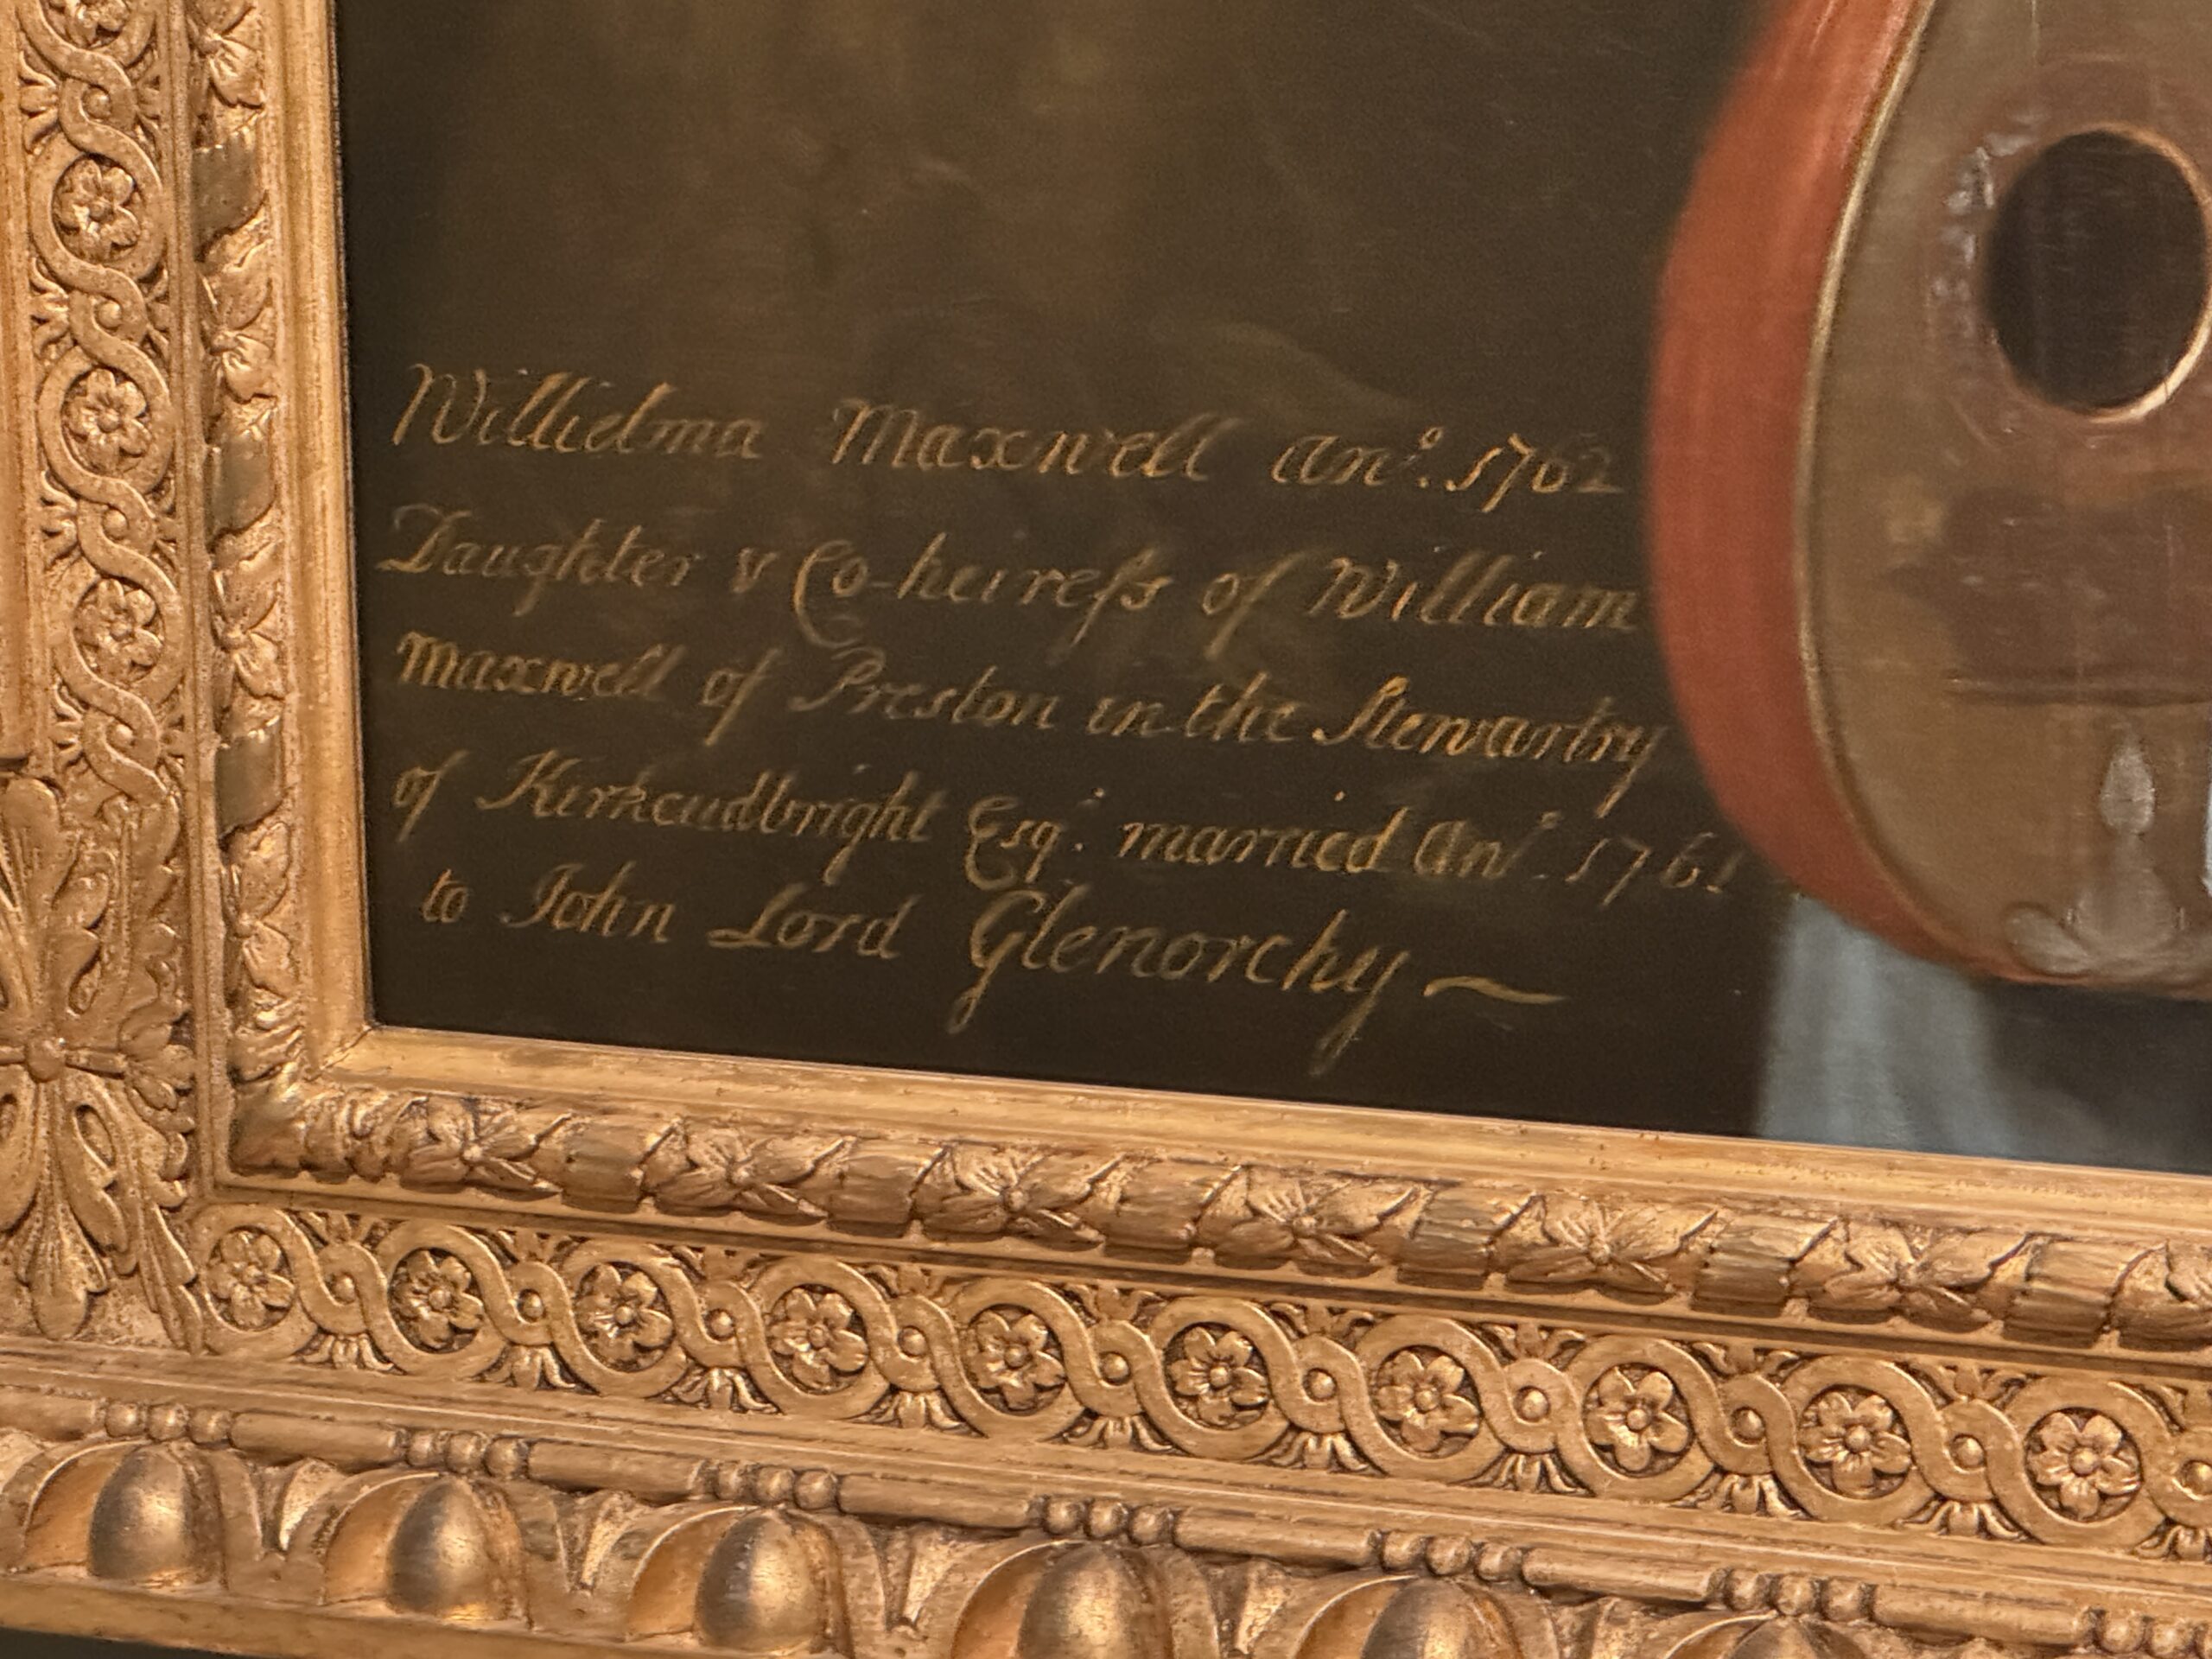 Willielma Maxwell Anº. 1762
Daughter & Co-heireſs of William
Maxwell of Preston in the Stewartry
of Kirkcudbright Esqʳ. married Anº. 1761
to John Lord Glenorchy ~